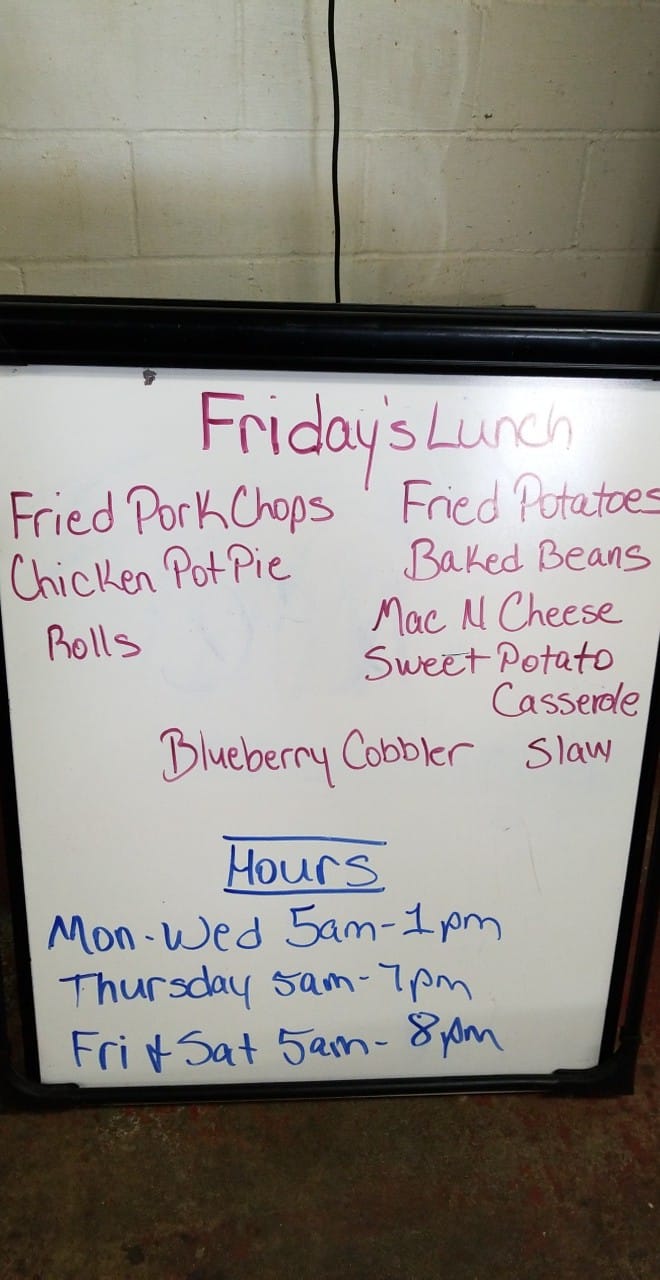 Friday's Lunch
Fried Pork Chops
Chicken Pot Pie
Rolls
Fried Potatoes
Baked Beans
Mac N Cheese
Sweet Potato
Casserole
Slaw
Blueberry Cobbler
Hours
Mon-Wed 5am-1pm
Thursday 5am-7pm
Fri & Sat 5am-8pm